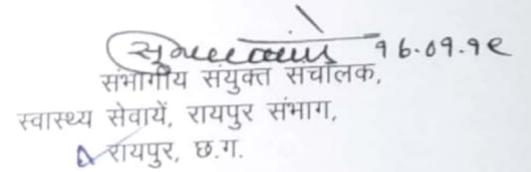 16.09.19
संभागीय संयुक्त संचालक,
स्वास्थ्य सेवायें, रायपुर संभाग,
रायपुर, छ.ग.